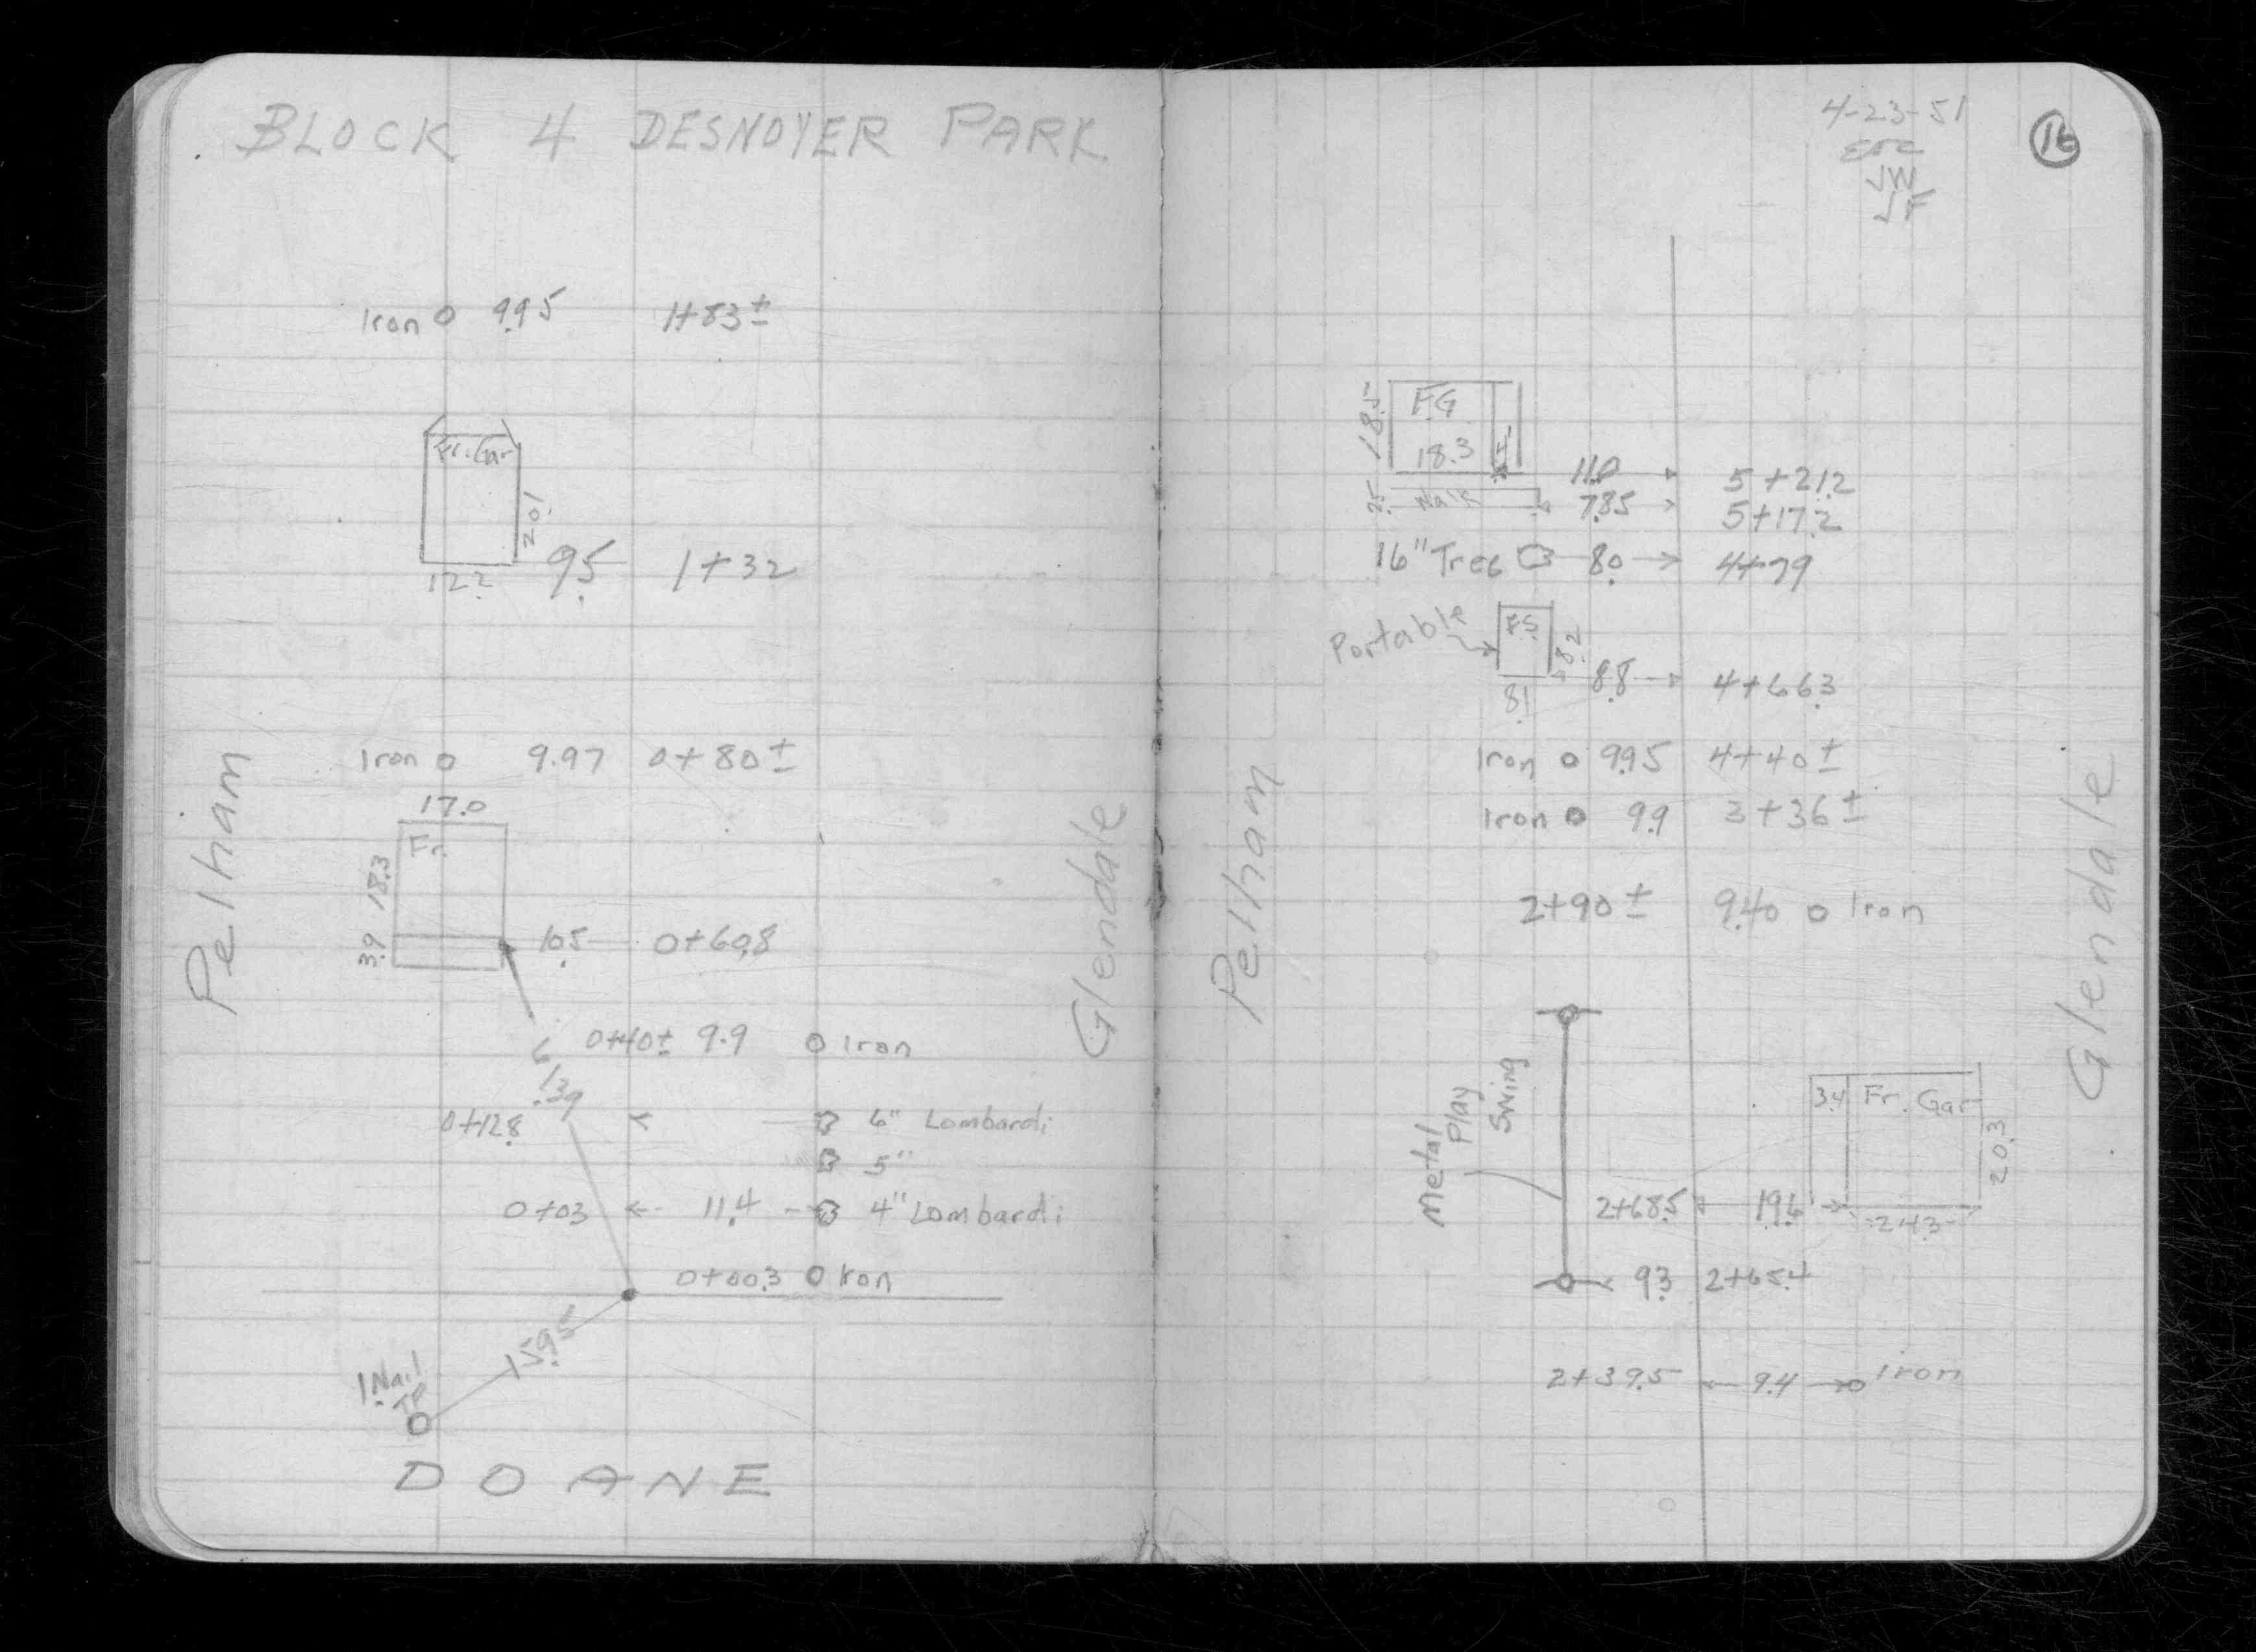 BLOCK 4 DESNOYER PARK
Iron 9.95 1+83±
Fr. Gar
20.1
12.2 9.5 1+32
Pelham
Iron 9.97 0+80±
17.0
Fr.
18.3
3.9
10.5 0+60.8
Glendale
0+40± 9.9 Iron
139
0+12.8 6" Lombardi
5"
0+03 11.4 4" Lombardi
0+00.3 Iron
159.5
1 Nail
TP
DOANE
4-23-51
JW
JF
16
18.5
F.G
18.3
11.0 5+21.2
2.5 Walk 7.85 5+17.2
16" Tree 8.0 4+79
Portable
F.S.
8.2
8.1 8.8 4+66.3
Iron 9.95 4+40±
Iron 9.9 3+36±
2+90± 9.40 Iron
Pelham
Glendale
Metal
Play
Swing
3.4 Fr. Gar
20.3
2+68.5 19.6 24.3
9.3 2+65.4
2+39.5 9.4 Iron